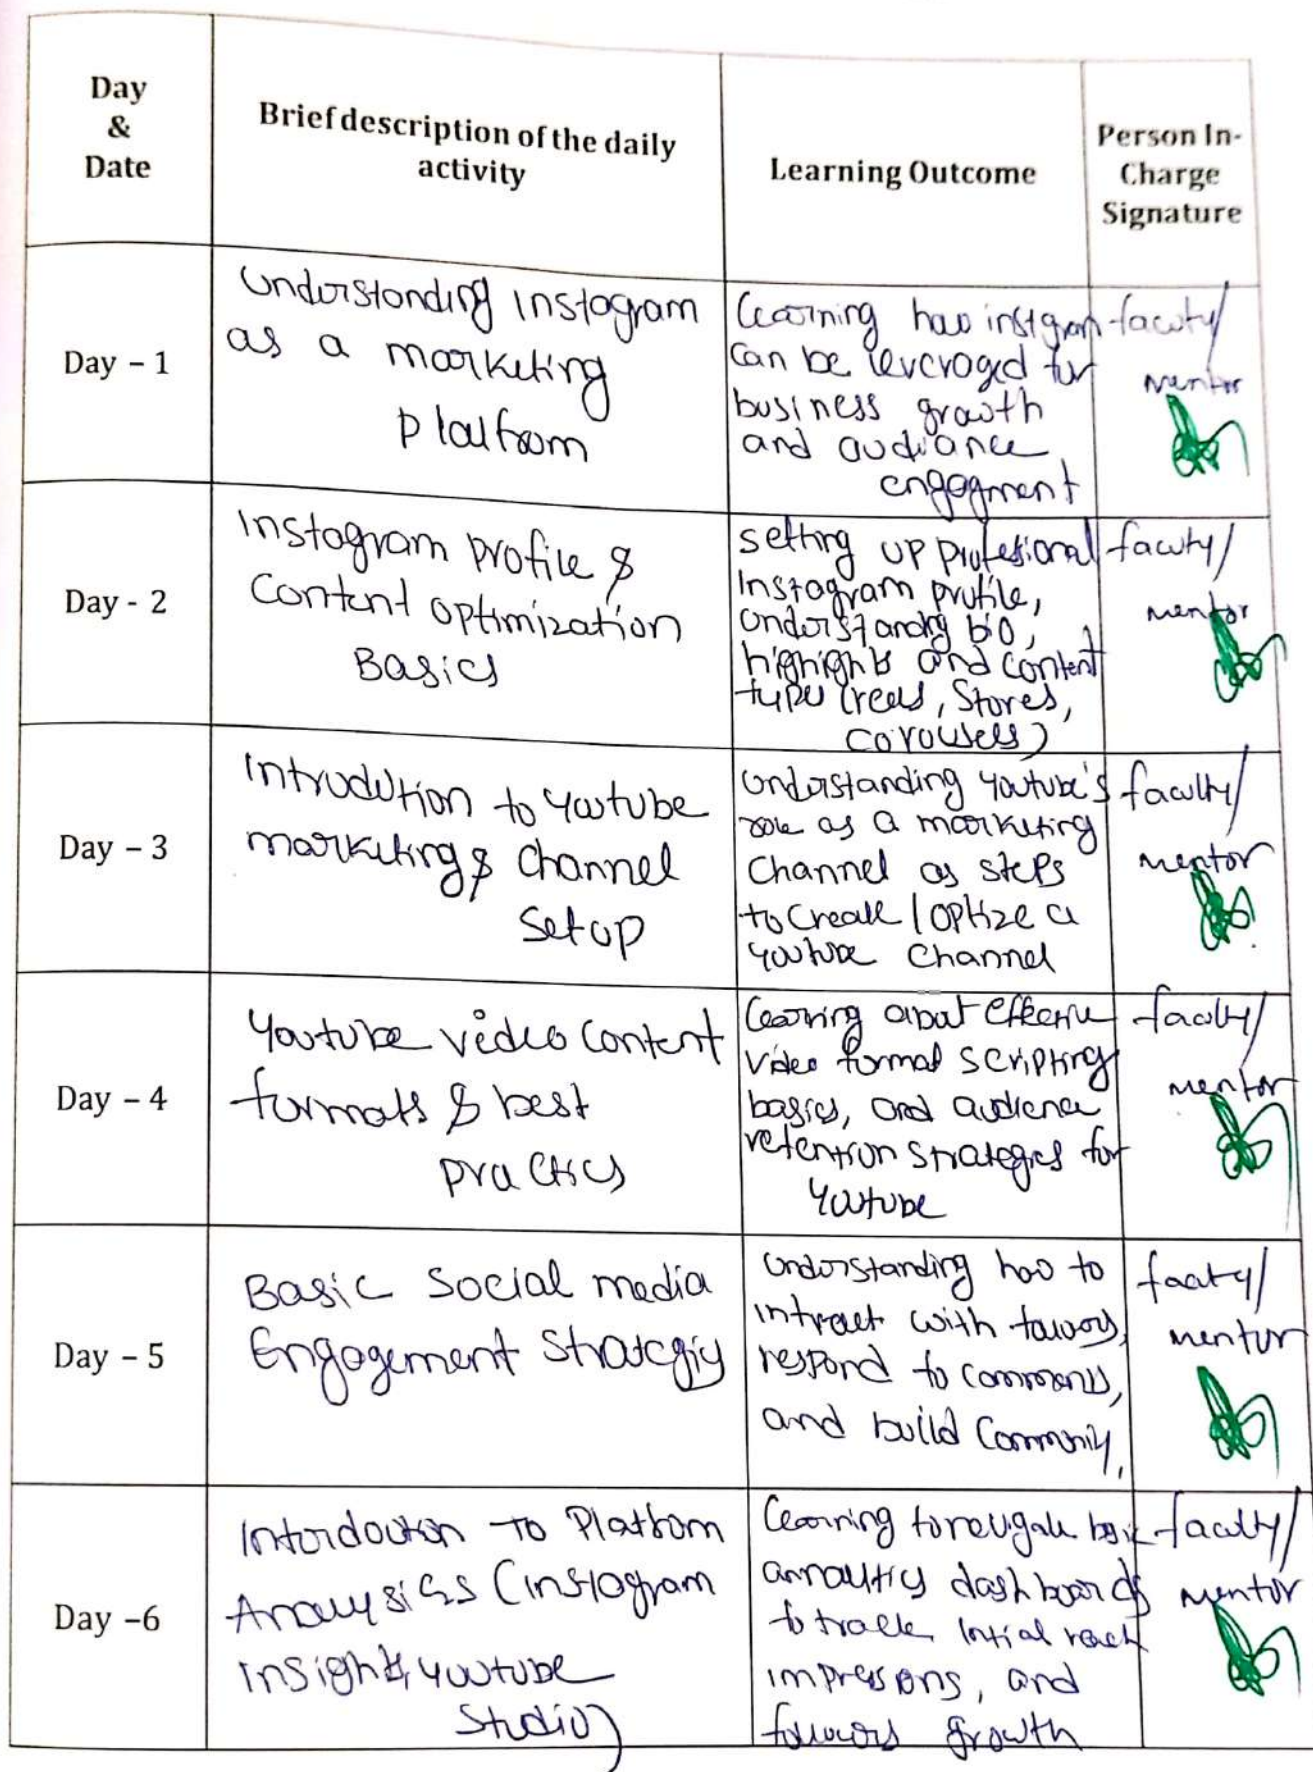 Day
&
Date
Brief description of the daily
activity
Learning Outcome
Person In-
Charge
Signature
Day – 1
Understanding Instagram
as a marketing
Platform
Learning how instgram
can be leveraged for
business growth
and audiance
engagment
faculty/
mentor
Day - 2
Instagram Profile &
Content optimization
Basics
setting up profesional
Instagram profile,
understanding bio,
highights and content
type (reels, Stores,
carousels)
faculty/
mentor
Day – 3
Introdution to Youtube
marketing & channel
Setup
Understanding Youtube's
role as a marketing
Channel as steps
to create / optize a
Youtube Channel
faculty/
mentor
Day – 4
Youtube video content
formats & best
practics
Learning about effective
video format scripting
basics, and audience
retention strategies for
Youtube
faculty/
mentor
Day – 5
Basic Social media
Engagement
Understanding how to
intract with
respond to comments,
and build
faculty/
mentor
Day –6
to Platform
(instagram
insights, youtube
Studio)
Learning
dash boards
to track intial reach
impressions, and
growth
faculty/
mentor